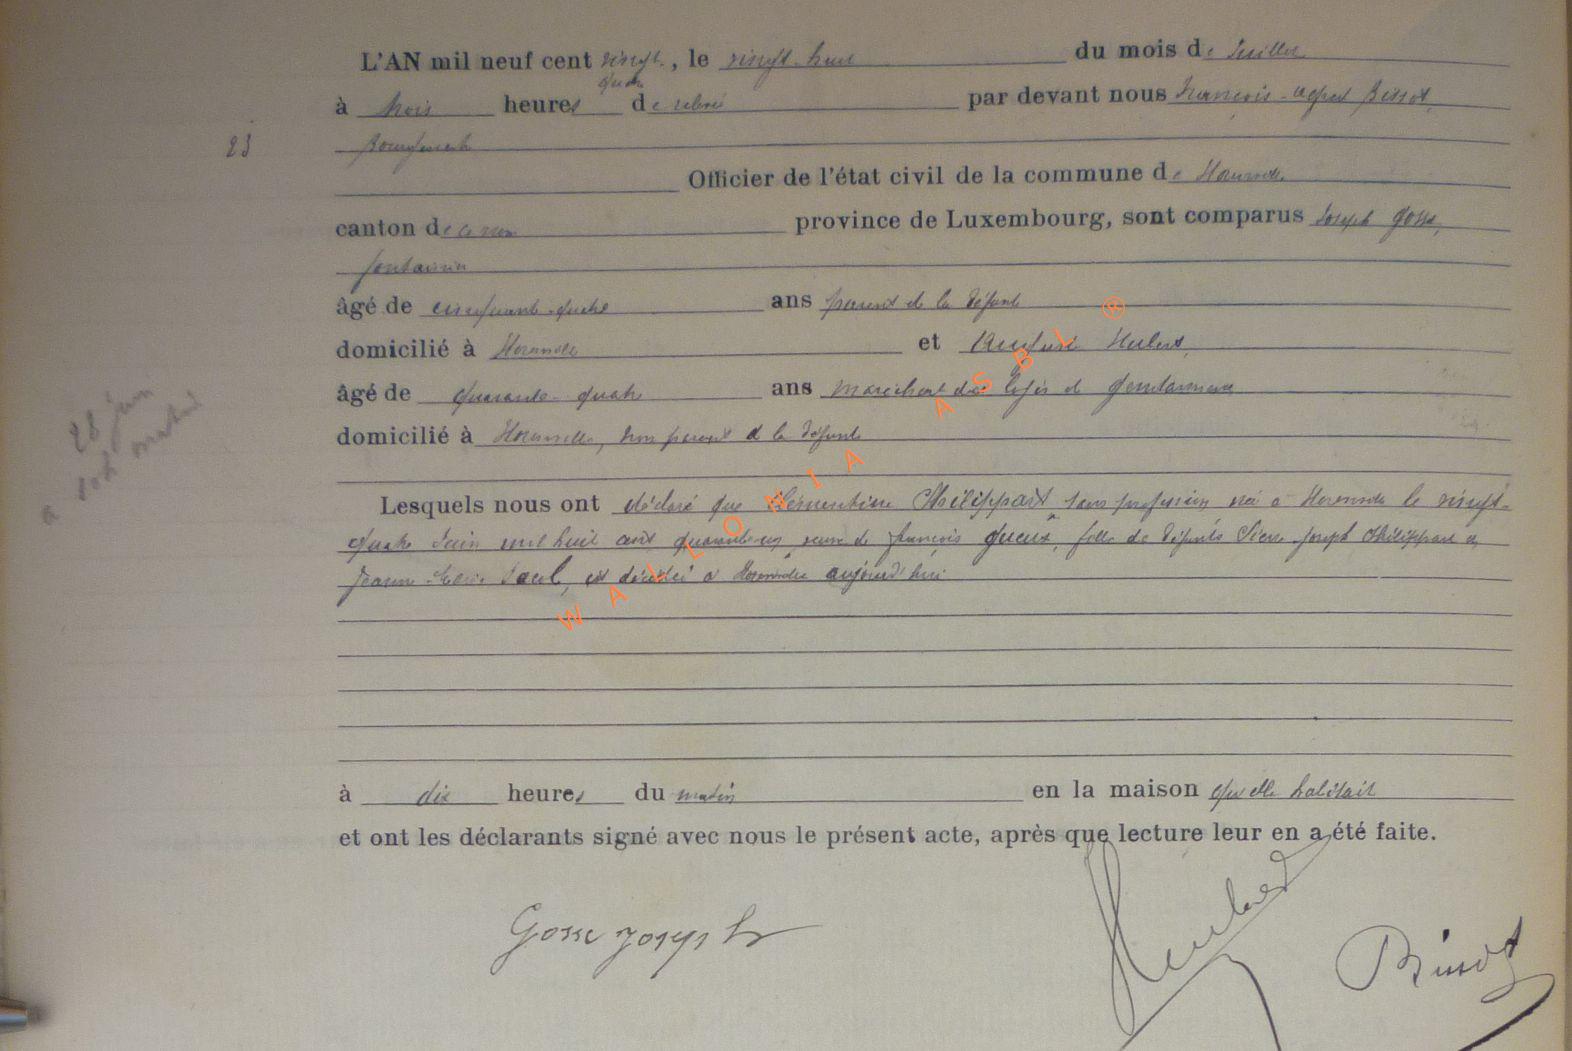 L'AN mil neuf cent vingt-, le vingt-huit du mois de Juillet
quatre
à trois heures de relevée par devant nous François Bissot,
23 Bourgmestre
Officier de l'état civil de la commune de
canton de ce nom province de Luxembourg, sont comparus Joseph Gosse,
âgé de cinquante-quatre ans parent de la défunte
domicilié à et Hubert,
âgé de quarante-quatre ans maréchal des logis de gendarmerie
28 juin
10h matin
a
domicilié à , non parent de la défunte
Lesquels nous ont déclaré que Clémentine Philippart, sans profession née à le vingt-
quatre Juin mil huit cent quarante un, veuve de François Gueux, fille de défunts Pierre Joseph Philippart et
Jeanne , est décédée à aujourd'hui
à dix heures du matin en la maison qu'elle habitait
et ont les déclarants signé avec nous le présent acte, après que lecture leur en a été faite.
Gosse Joseph
Bissot
WALLONIA ASBL ®